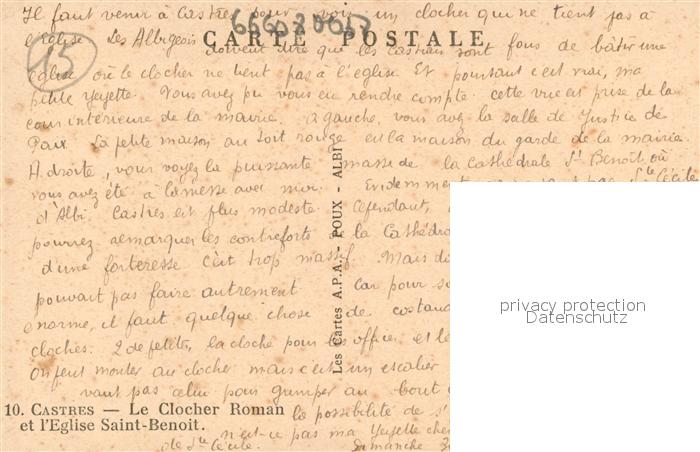 Il faut venir à Castres pour voir un clocher qui ne tient pas à
l'église. Les Albigeois doivent dire que les Castrais sont fous de bâtir une
CARTE POSTALE
15
église où le clocher ne tient pas à l'église Et pourtant c'est vrai, ma
petite Yeyette. Vous avez pu vous en rendre compte. cette vue est prise de la
cour intérieure de la mairie. A gauche, vous avez la salle de Justice de
Paix. La petite maison au toit rouge est la maison du garde de la mairie.
A droite, vous voyez la puissante masse de la cathédrale St Benoît où
vous avez été à la messe avec moi. Evidemment pas Ste Cécile
d'Albi. Castres est plus modeste. Cependant,
pourrez remarquer les contreforts de la Cathédr
d'une forteresse C'est trop massif. Mais
pouvait pas faire autrement car pour
énorme, il faut quelque chose de costaud
cloches. 2 de petites, la cloche pour les offices et le
On peut monter au clocher mais c'est un escalier
vaut pas celui pour grimper au bout
la possibilité de
n'est-ce pas ma Yeyette
de Ste Cécile. Dimanche
Les Cartes A.P.A. - POUX - ALBI
10. CASTRES — Le Clocher Roman
et l'Eglise Saint-Benoit.
privacy protection
Datenschutz